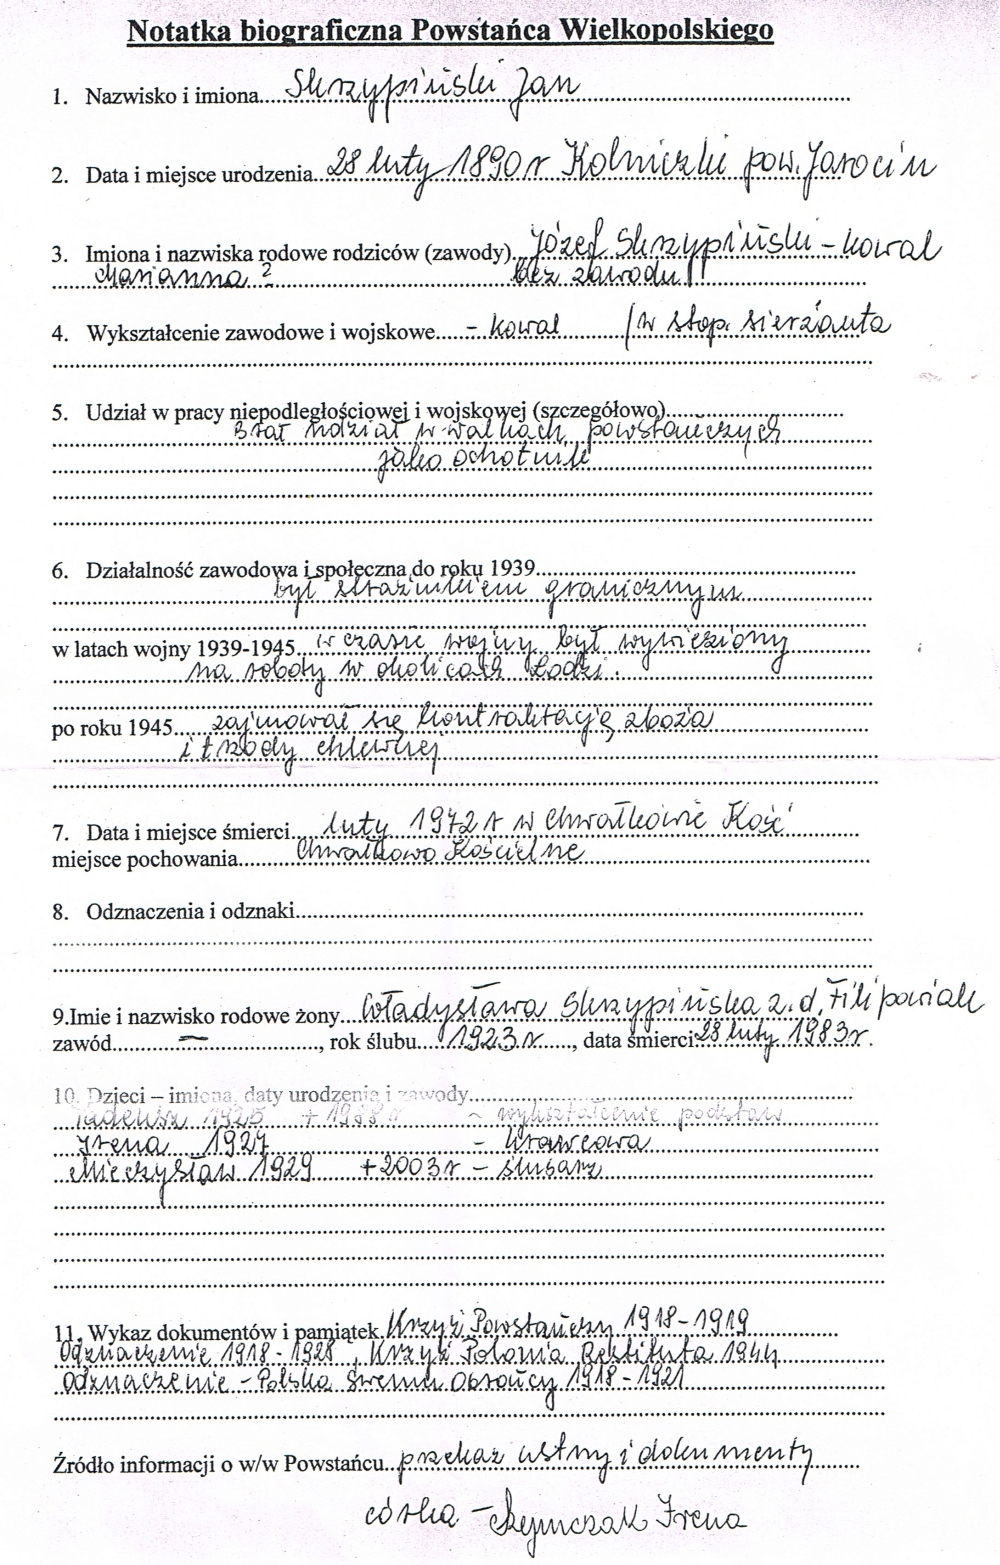 Notatka biograficzna Powstańca Wielkopolskiego
1. Nazwisko i imiona....Skrzypiński Jan
2. Data i miejsce urodzenia..28 luty 1890 r Kolniczki pow. Jarocin
3. Imiona i nazwiska rodowe rodziców (zawody)..Józef Skrzypiński - kowal
Marianna ? bez zawodu
4. Wykształcenie zawodowe i wojskowe.....- kowal /w stop. sierżanta
5. Udział w pracy niepodległościowej i wojskowej (szczegółowo)
Brał udział w walkach powstańczych
jako ochotnik
6. Działalność zawodowa i społeczna do roku 1939
był strażnikiem granicznym
w latach wojny 1939-1945...w czasie wojny był wywieziony
na roboty w okolicach Łodzi.
po roku 1945.....zajmował się kontraktacją zboża
i trzody chlewnej
7. Data i miejsce śmierci.....luty 1972 r w Chwałkowie Kość
miejsce pochowania.........Chwałkowo Kościelne
8. Odznaczenia i odznaki
9.Imie i nazwisko rodowe żony...Władysława Skrzypińska z.d. Filipowiak
zawód..........—.........., rok ślubu....1923 r....., data śmierci 28 luty 1983r.
10. Dzieci – imiona, daty urodzenia i zawody
Tadeusz 1925 + 1988 r - wykształcenie podstaw
Irena 1927 - krawcowa
Mieczysław 1929 +2003 r - ślusarz
11. Wykaz dokumentów i pamiątek Krzyż Powstańczy 1918-1919
Odznaczenie 1918-1928, Krzyż Polonia Restituta 1944
Odznaczenie - Polska Swemu Obrońcy 1918-1921
Źródło informacji o w/w Powstańcu..przekaz ustny i dokumenty
córka - Szymczak Irena